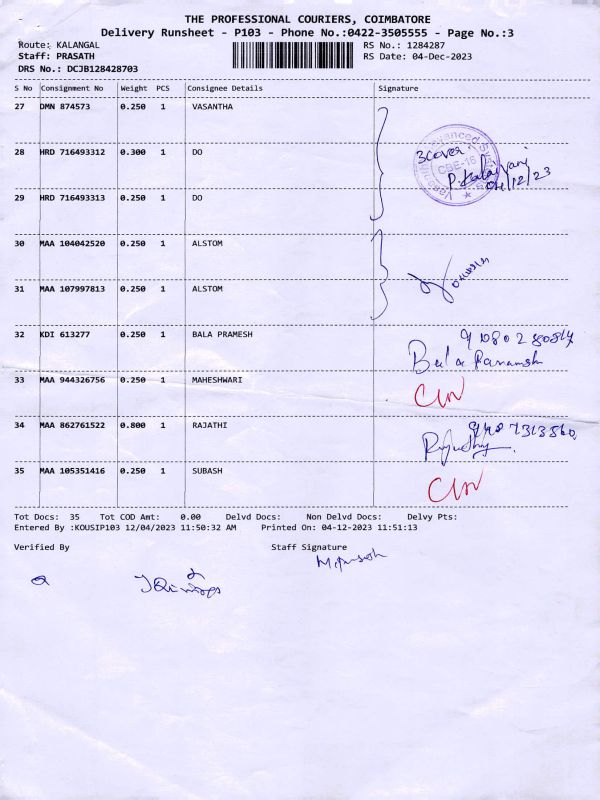 THE PROFESSIONAL COURIERS, COIMBATORE
Delivery Runsheet - P103 - Phone No.:0422-3505555 - Page No.:3
Route: KALANGAL RS No.: 1284287
Staff: PRASATH RS Date: 04-Dec-2023
DRS No.: DCJB128428703
S No Consignment No Weight PCS Consignee Details Signature
27 DMN 874573 0.250 1 VASANTHA
28 HRD 716493312 0.300 1 DO
3 cover
CBE-16
P. Kalaivani
04/12/23
29 HRD 716493313 0.250 1 DO
30 MAA 104042520 0.250 1 ALSTOM
31 MAA 107997813 0.250 1 ALSTOM
32 KDI 613277 0.250 1 BALA PRAMESH
Bala
33 MAA 944326756 0.250 1 MAHESHWARI
34 MAA 862761522 0.800 1 RAJATHI
35 MAA 105351416 0.250 1 SUBASH
Tot Docs: 35 Tot COD Amt: 0.00 Delvd Docs: Non Delvd Docs: Delvy Pts:
Entered By :KOUSIP103 12/04/2023 11:50:32 AM Printed On: 04-12-2023 11:51:13
Verified By Staff Signature